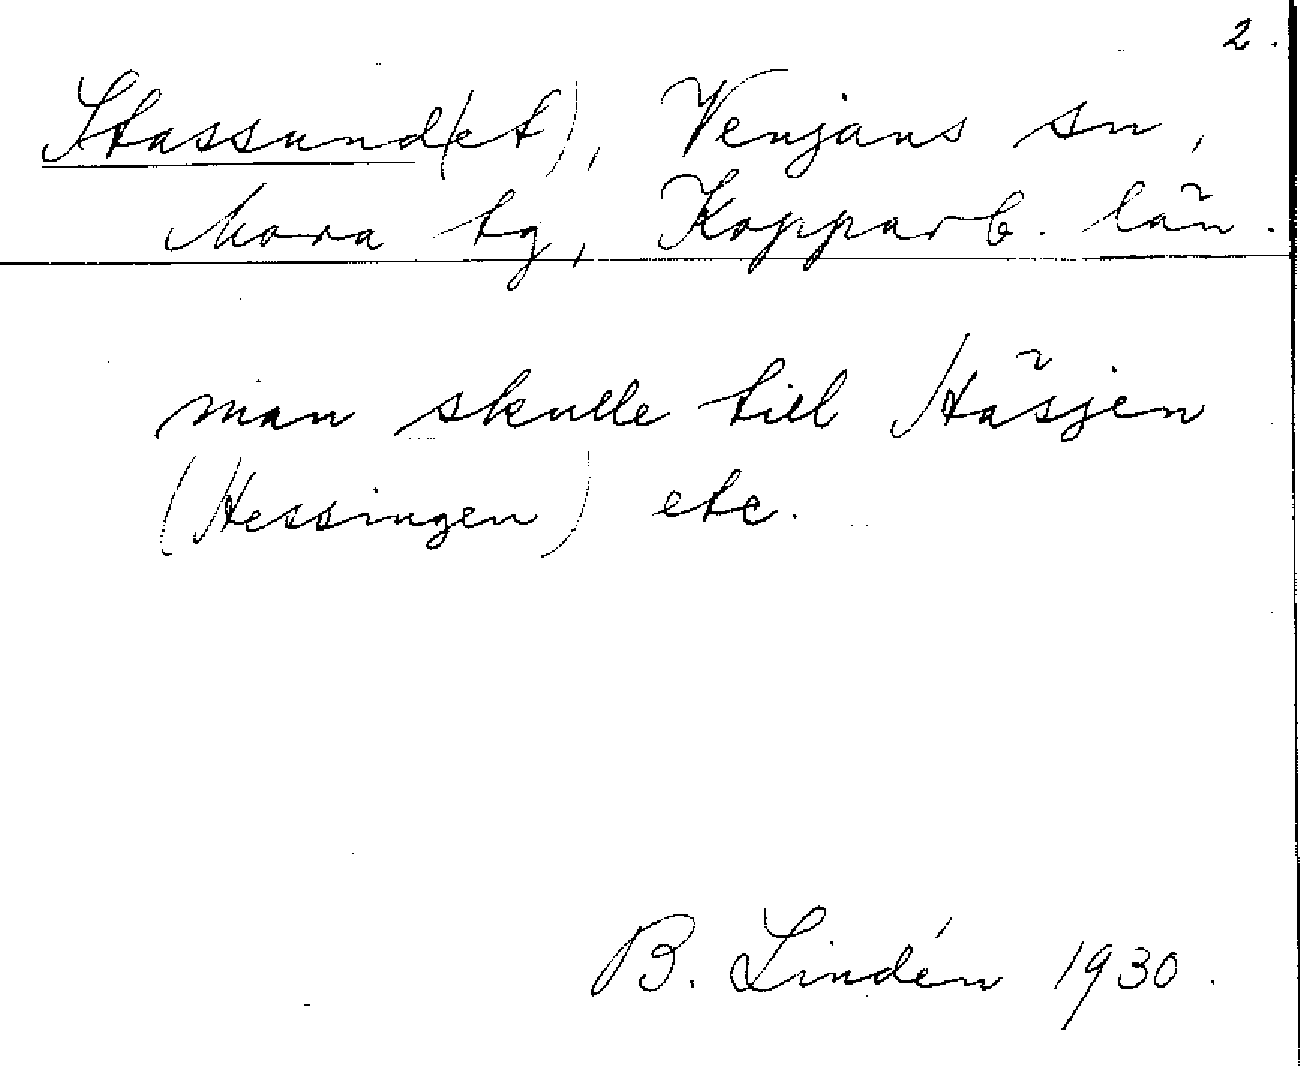 2.
Stassund(et), Venjans sn,
Mora tg, Kopparb. län.
man skulle till Häsjen
(Hessingen) etc.
B. Lindén 1930.